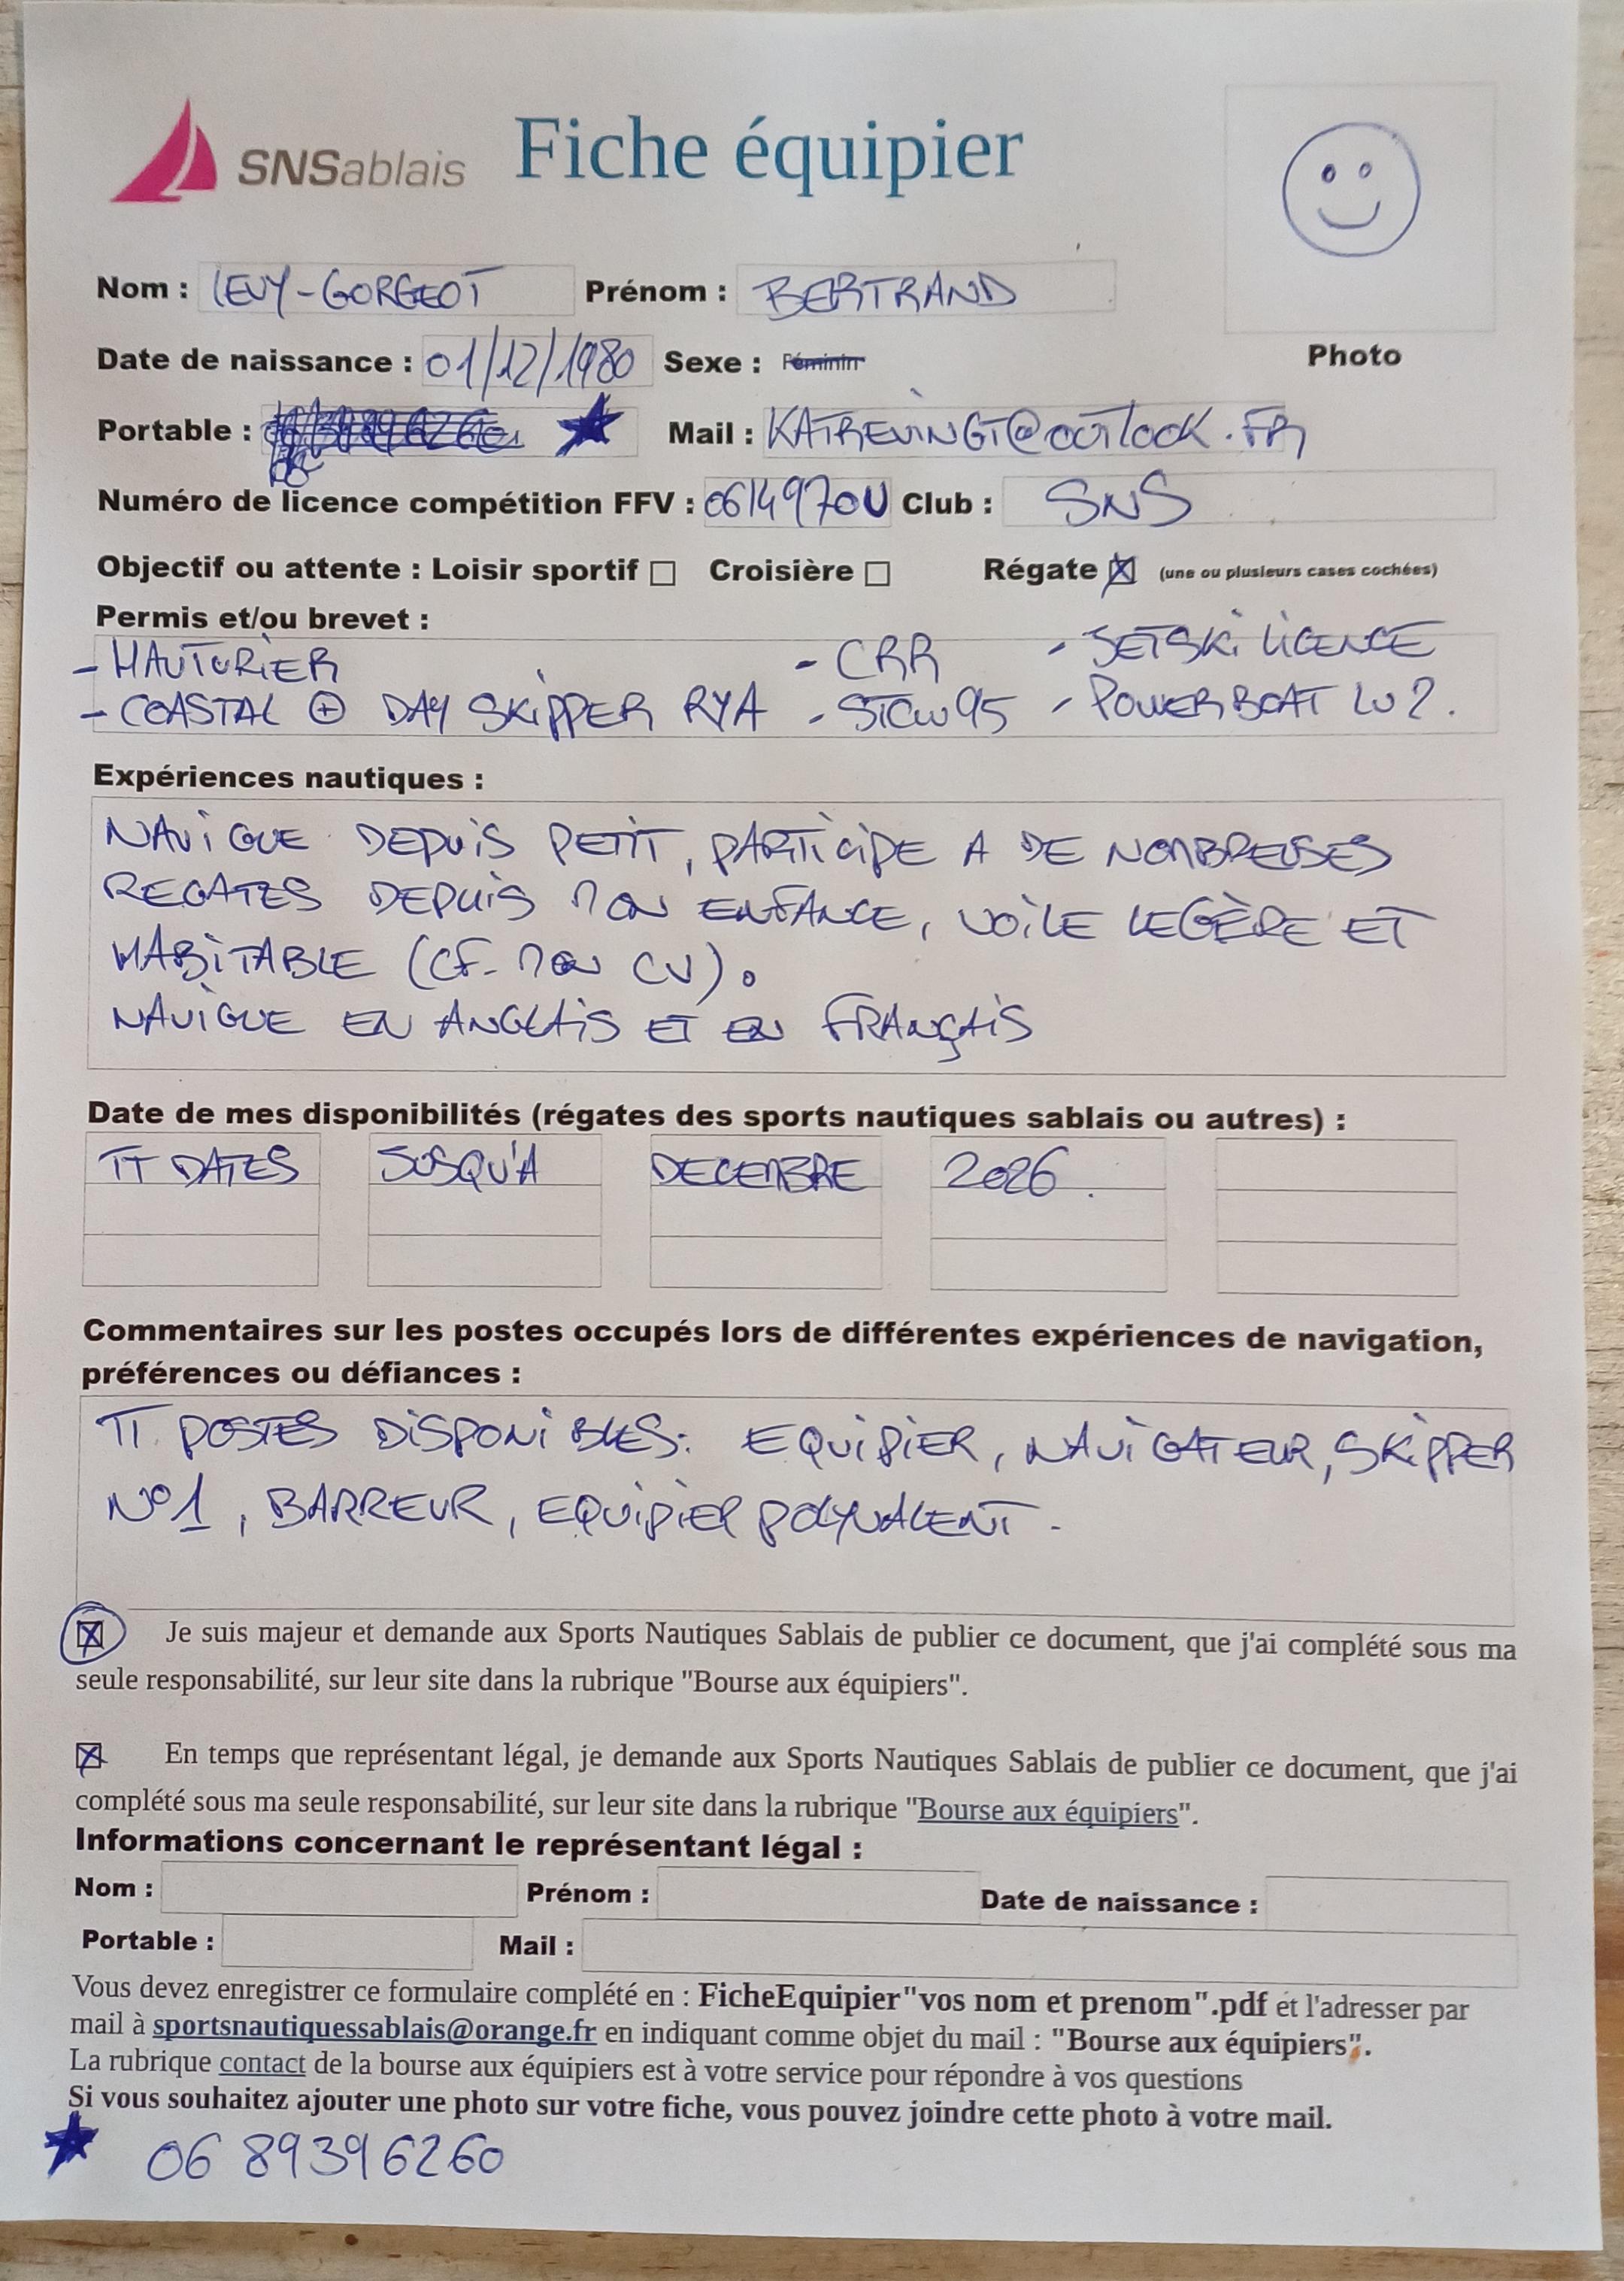 SNSablais Fiche équipier
Nom : LEVY-GORGEOT Prénom : BERTRAND
Date de naissance : 01/12/1980 Sexe : Féminin
Photo
Portable : Mail : KATREVINGT@OUTLOOK.FR
Numéro de licence compétition FFV : 0614970U Club : SNS
Objectif ou attente : Loisir sportif Croisière Régate (une ou plusieurs cases cochées)
Permis et/ou brevet :
- HAUTURIER - CRR - JETSKI LICENCE
- COASTAL + DAY SKIPPER RYA - STCW95 - POWERBOAT LV2.
Expériences nautiques :
NAVIGUE DEPUIS PETIT, PARTICIPE A DE NOMBREUSES
REGATES DEPUIS MON ENFANCE, VOILE LEGÈRE ET
HABITABLE (CF. MON CV).
NAVIGUE EN ANGLAIS ET EN FRANÇAIS
Date de mes disponibilités (régates des sports nautiques sablais ou autres) :
TT DATES JUSQU'A DECEMBRE 2026.
Commentaires sur les postes occupés lors de différentes expériences de navigation,
préférences ou défiances :
TT POSTES DISPONIBLES: EQUIPIER, NAVIGATEUR, SKIPPER
N°1, BARREUR, EQUIPIER POLYVALENT.
Je suis majeur et demande aux Sports Nautiques Sablais de publier ce document, que j'ai complété sous ma
seule responsabilité, sur leur site dans la rubrique "Bourse aux équipiers".
En temps que représentant légal, je demande aux Sports Nautiques Sablais de publier ce document, que j'ai
complété sous ma seule responsabilité, sur leur site dans la rubrique "Bourse aux équipiers".
Informations concernant le représentant légal :
Nom : Prénom : Date de naissance :
Portable : Mail :
Vous devez enregistrer ce formulaire complété en : FicheEquipier"vos nom et prenom".pdf et l'adresser par
mail à sportsnautiquessablais@orange.fr en indiquant comme objet du mail : "Bourse aux équipiers".
La rubrique contact de la bourse aux équipiers est à votre service pour répondre à vos questions
Si vous souhaitez ajouter une photo sur votre fiche, vous pouvez joindre cette photo à votre mail.
06 89396260